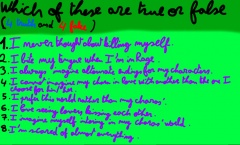 Which of these are true or false
(4 truth and 4 false)
1. I never thought about killing myself.
2. I bite my tongue when I'm in rage.
3. I always imagine alternate endings for my characters.
4. I cannot imagine my chars in love with another than the one I
choose for him/her.
5. I prefer this world rather than my charas'.
6. I love seeing lovers kissing each other.
7. I imagine myself living in my charas' world.
8. I'm scared of almost everything.